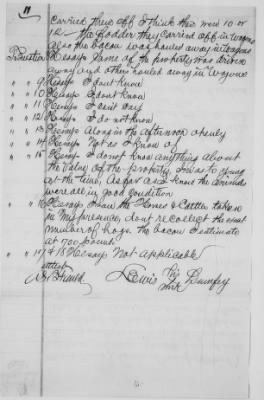 11
carried them off I think there were 10 or
12 the fodder they carried off in wagons
also the bacon was hauled away in wagons
Question He says Some of the property was driven
away and other hauled away in wagons
" " 9 He says I dont know
" " 10 He says I dont know
" " 11 He says I cant say
" " 12 He says I do not know
" " 13 He says Along in the afternoon
" " 14 He says Not as I know of
" " 15 He says I do not know anything about
the value of the property I was to young
at the time, As far as I know the animals
were all in good condition
" " 16 He says I saw the Horses & Cattle taken
in my presence, dont recollect the exact
number of hogs the bacon I estimate
at 700 pounds
" " 17 & 18 He says Not applicable
attest
Lewis his mark